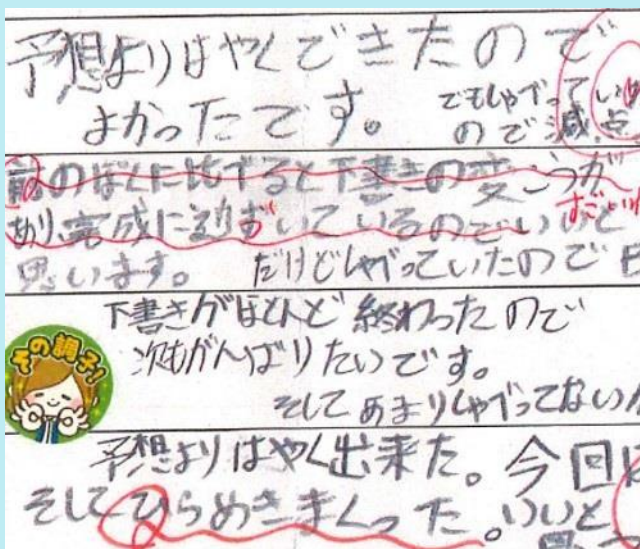 予想よりはやくできたので
よかったです。
でもしゃべって
ので減点
前のぼくに比べると下書きの変こうが
あり、完成に近ずいているのでいいと
づ
すごい
思います。 だけどしゃべっていたので
下書きがほとんど終わったので
次もがんばりたいです。
そしてあまりしゃべってない
その調子!
予想よりはやく出来た。今回
そしてひらめきまくった。いいと